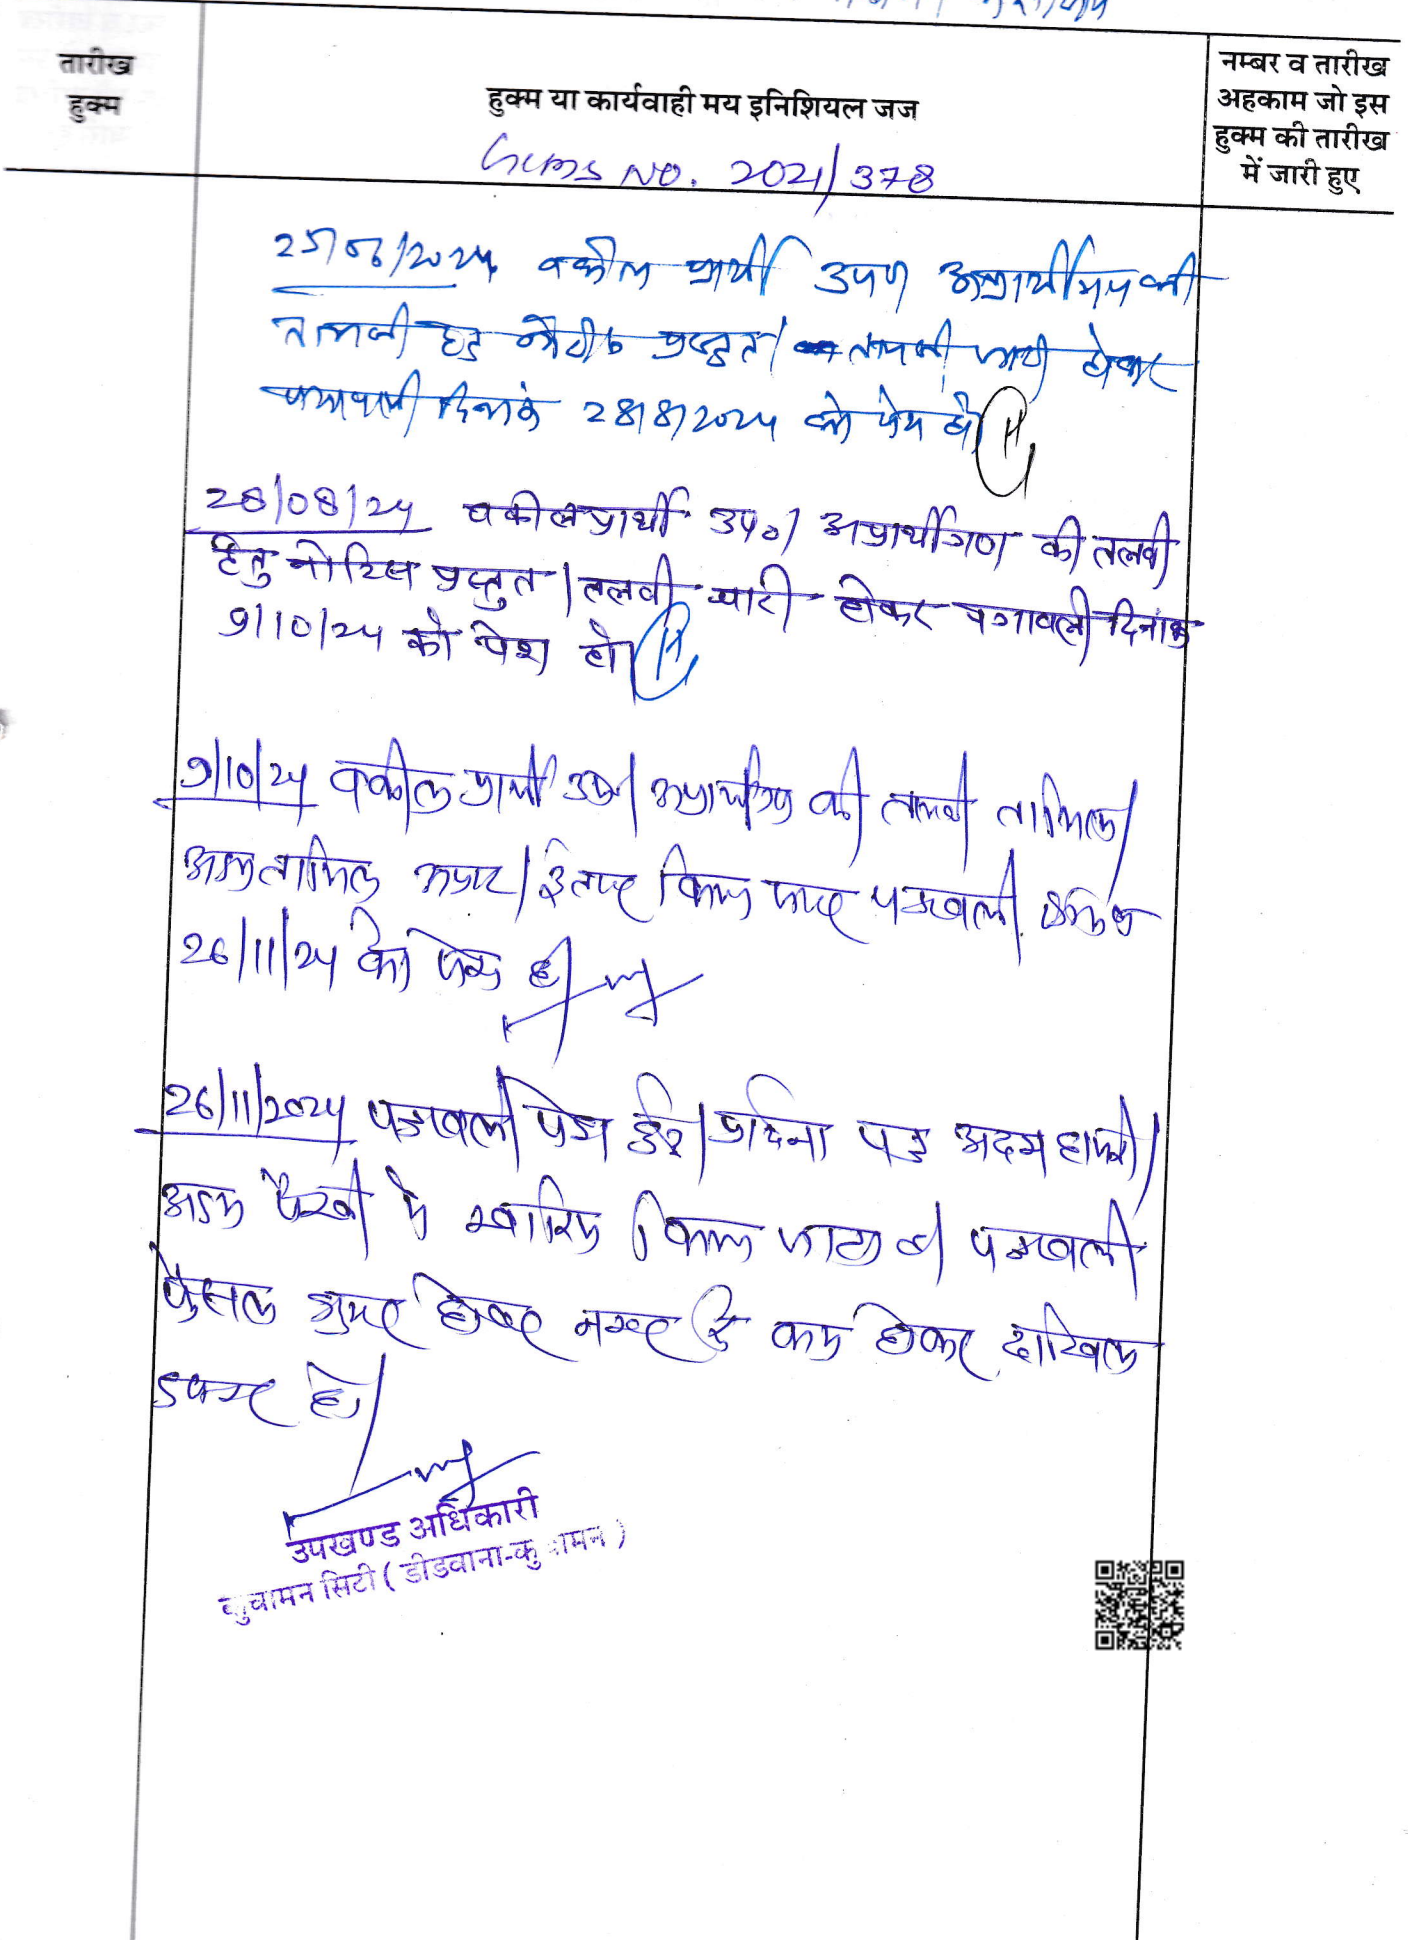 तारीख
हुक्म
हुक्म या कार्यवाही मय इनिशियल जज
नम्बर व तारीख
अहकाम जो इस
हुक्म की तारीख
में जारी हुए
GCMS NO. 2021/378
25/06/2024 वकील प्रार्थी उप० अप्रार्थीगण की
तलबी हेतु नोटिस प्रस्तुत। तलबी जारी होकर
पत्रावली दिनांक 28/8/2024 को पेश हो।
28/08/24 वकील प्रार्थी उप०। अप्रार्थीगण की तलबी
हेतु नोटिस प्रस्तुत। तलबी जारी होकर पत्रावली दिनांक
9/10/24 को पेश हो।
9/10/24 वकील प्रार्थी उप०। अप्रार्थीगण की तलबी तामिल/
अदम तामिल किया जाए पत्रावली दिनांक
26/11/24 को पेश हो।
26/11/2024 पत्रावली पेश हुई। प्रार्थना पत्र अदम हाजरी/
अदम पैरवी में खारिज किया जाता है। पत्रावली
फैसल शुमार होकर नम्बर से कम होकर दाखिल
दफ्तर हो।
उपखण्ड अधिकारी
कुचामन सिटी ( डीडवाना-कुचामन )